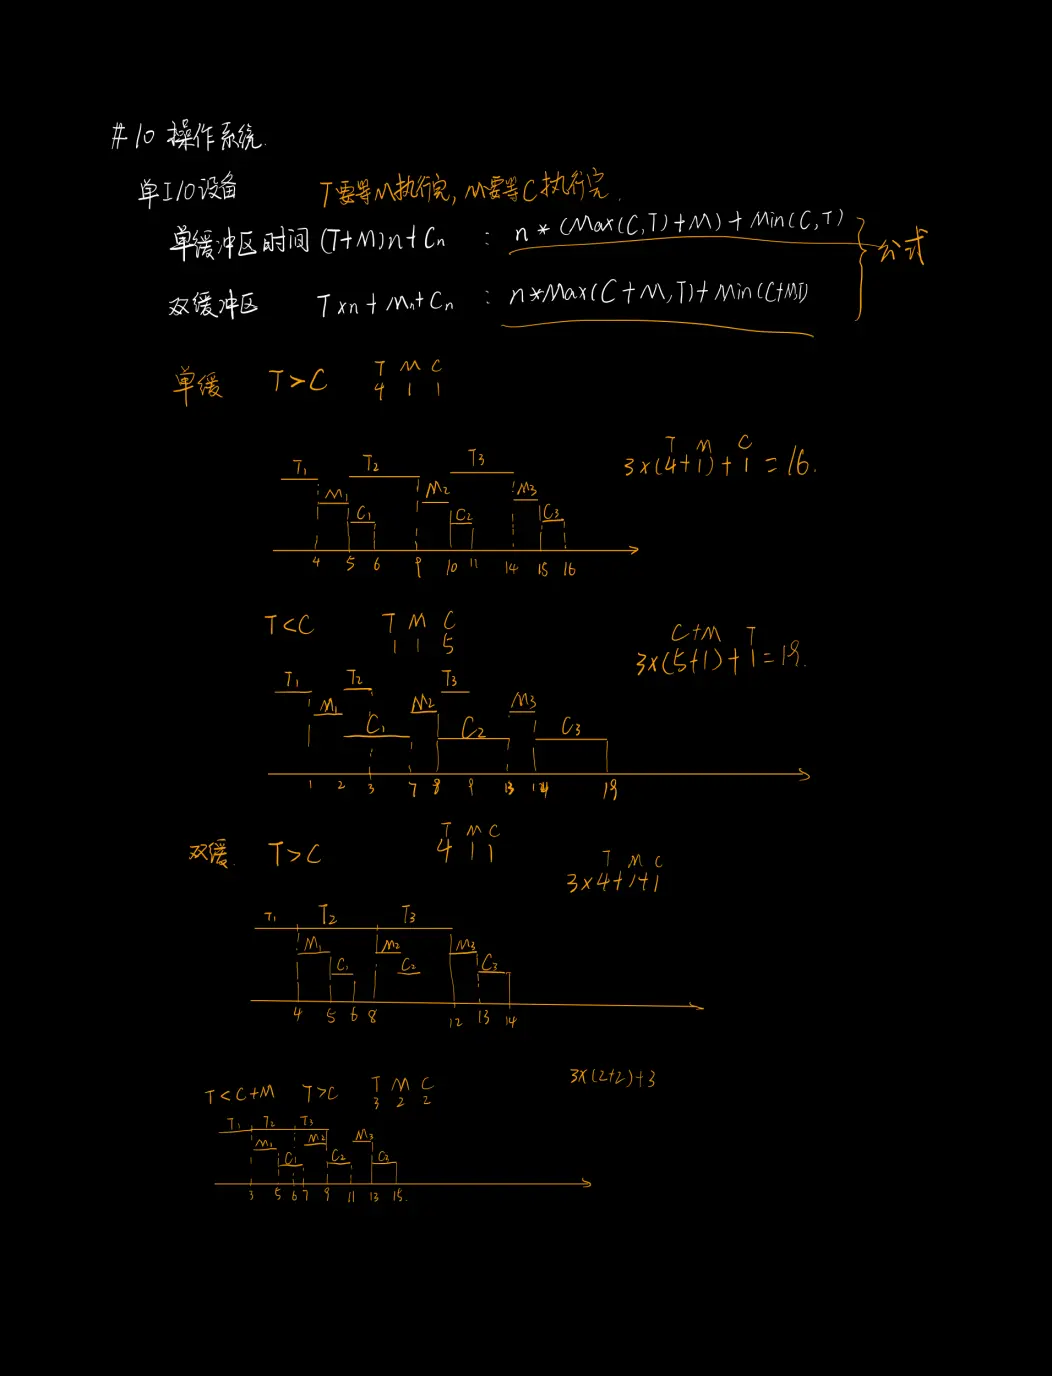 #10 操作系统.
单I/O设备 T要等M执行完, M要等C执行完.
单缓冲区时间 (T+M)n+Cn : n*(Max(C,T)+M)+Min(C,T)
公式
双缓冲区 T×n+Mn+Cn : n*Max(C+M,T)+Min(C+M,T)
单缓 T>C T M C
4 1 1
T M C
3×(4+1)+1=16.
T1 T2 T3
M1 M2 M3
C1 C2 C3
4 5 6 9 10 11 14 15 16
T<C T M C
1 1 5
C+M T
3×(5+1)+1=19.
T1 T2 T3
M1 M2 M3
C1 C2 C3
1 2 3 7 8 9 13 14 19
双缓. T>C T M C
4 1 1
T M C
3×4+1+1
T1 T2 T3
M1 M2 M3
C1 C2 C3
4 5 6 8 12 13 14
T<C+M T>C T M C
3 2 2
3×(2+2)+3
T1 T2 T3
M1 M2 M3
C1 C2 C3
3 5 6 7 9 11 13 15.